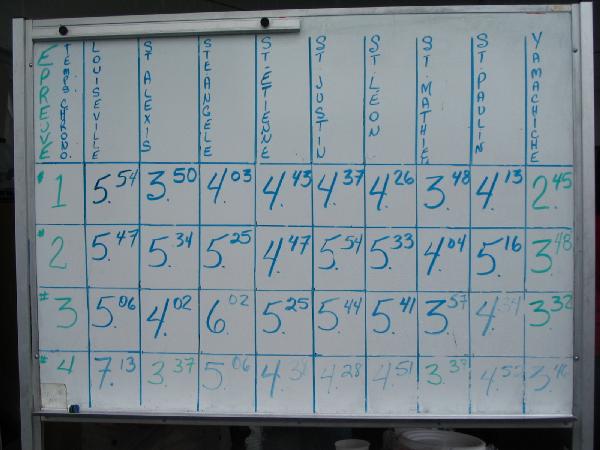 EPREUVE TEMPS CHRONO. LOUISEVILLE ST ALEXIS STE ANGELE ST ETIENNE ST JUSTIN ST LEON ST MATHIEU ST PAULIN YAMACHICHE
#1 5.54 3.50 4.03 4.43 4.37 4.26 3.48 4.13 2.45
#2 5.47 5.34 5.25 4.47 5.54 5.33 4.04 5.16 3.48
#3 5.06 4.02 6.02 5.25 5.44 5.41 3.57 4. 3.32
#4 7.13 3.37 5.06 4. 4.28 4.51 3.39 4. 3.